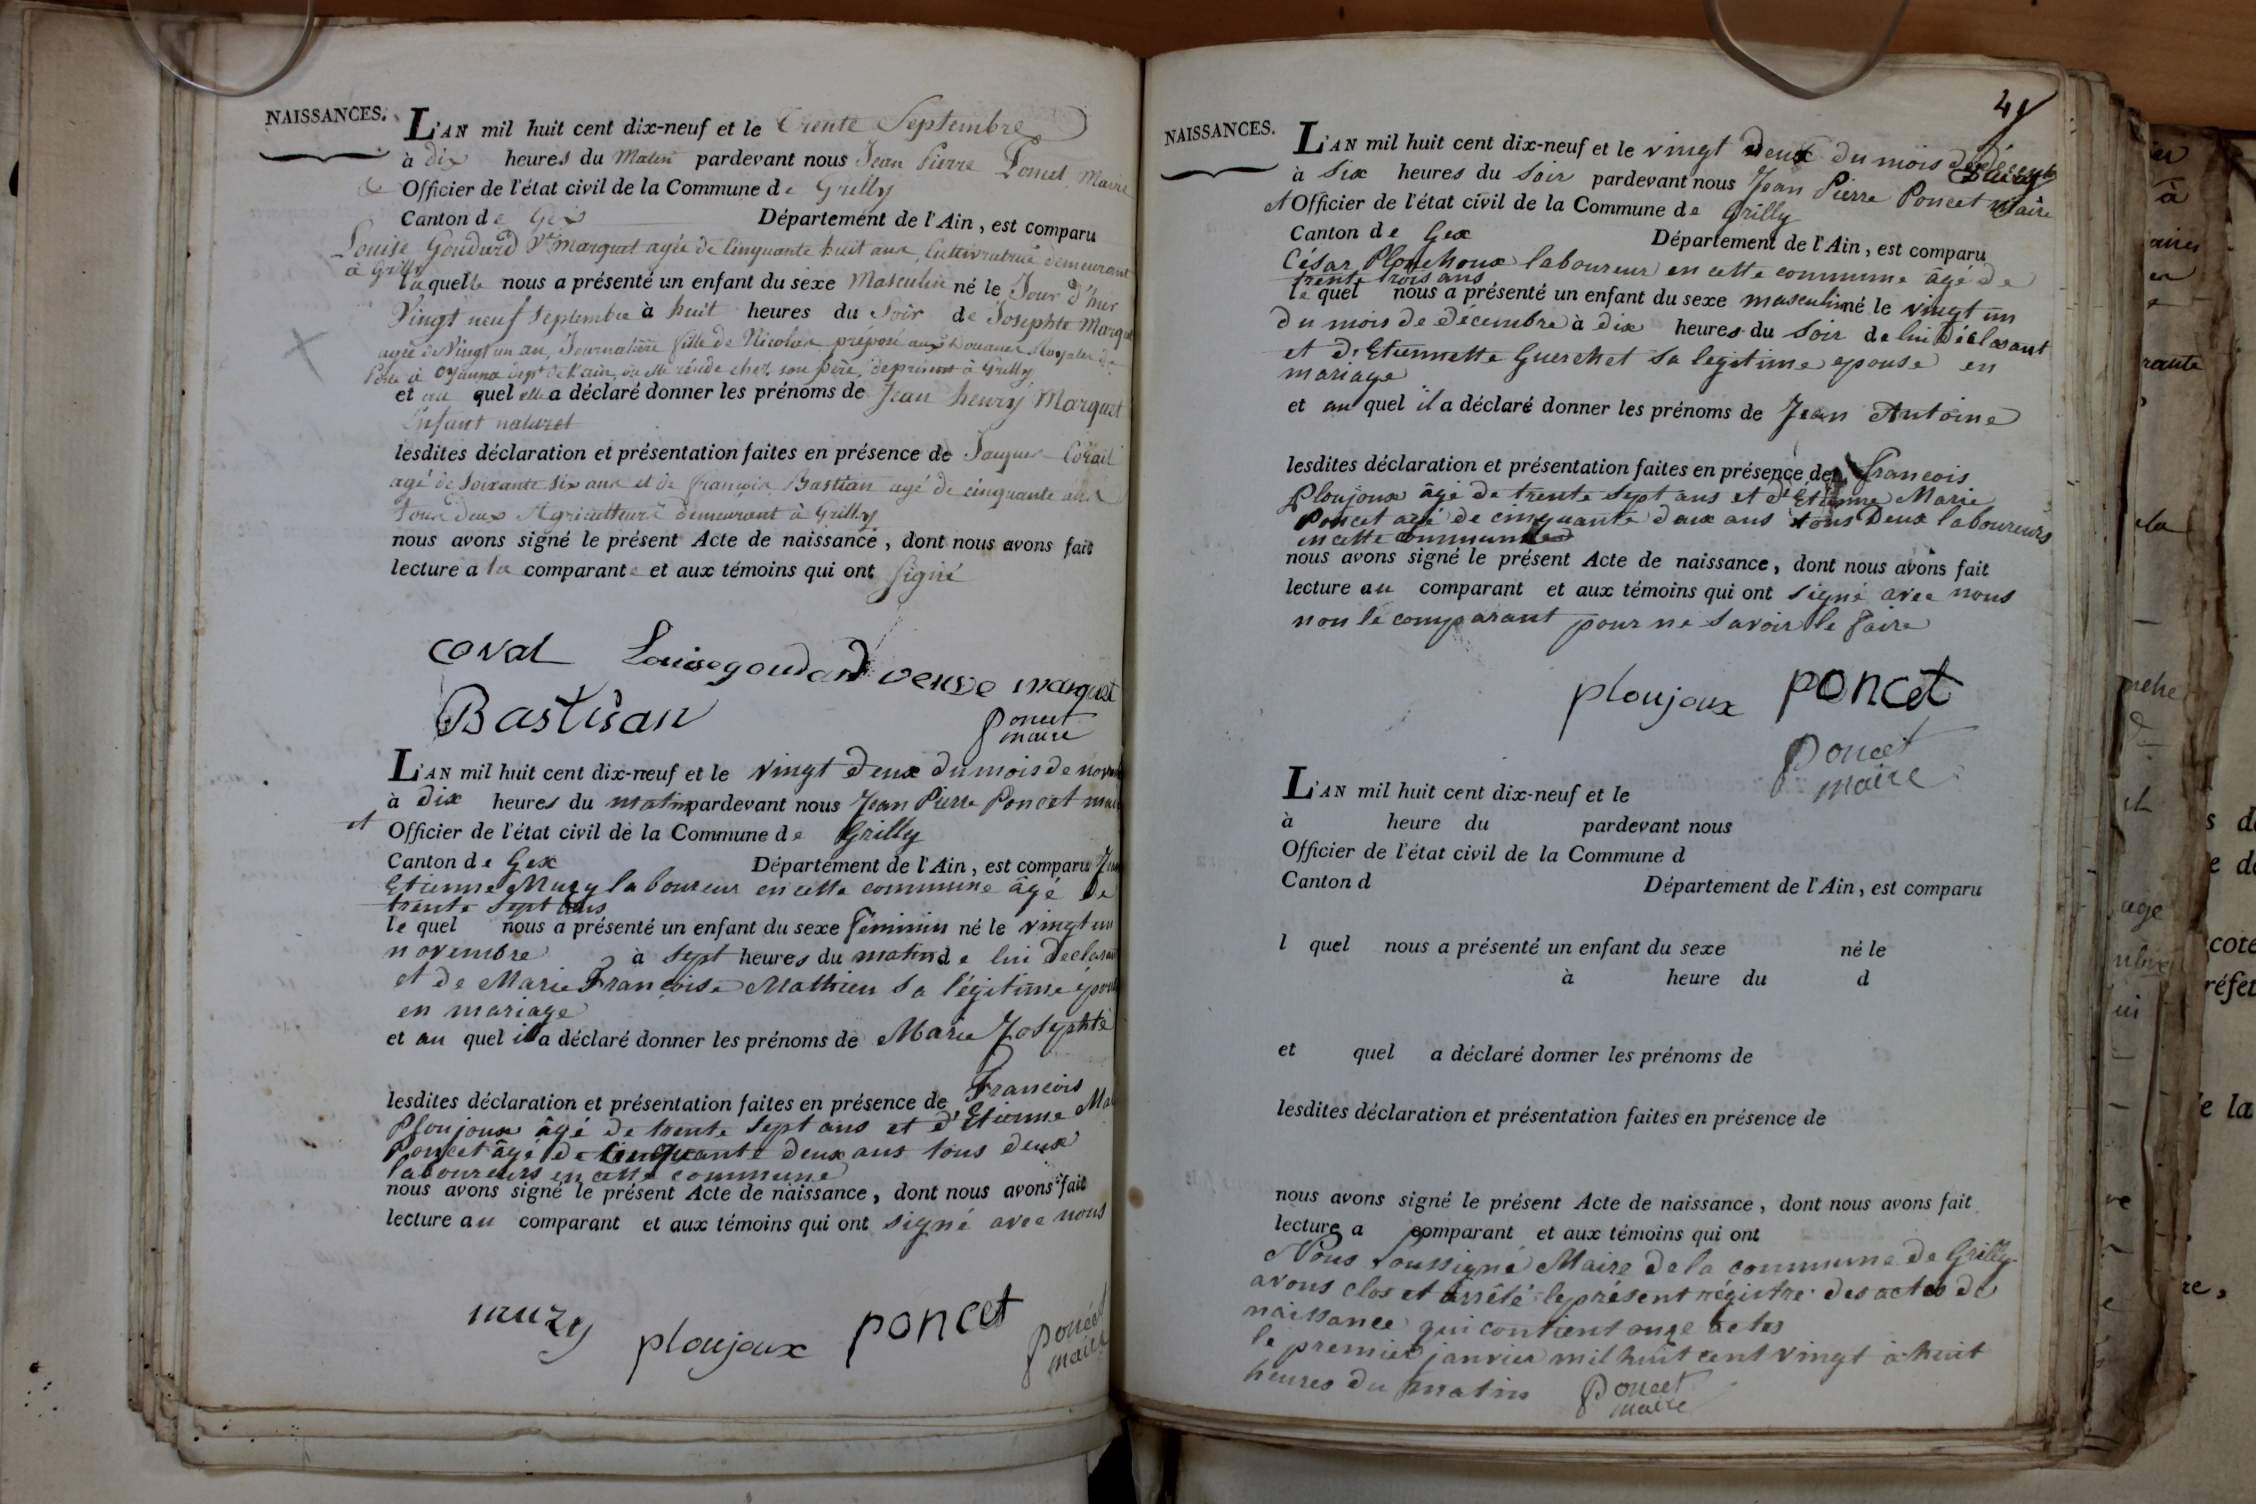 NAISSANCES.
L'AN mil huit cent dix-neuf et le Trente Septembre
à dix heures du Matin pardevant nous Jean Pierre Poncet Maire
& Officier de l'état civil de la Commune de Grilly
Canton de Gex Département de l'Ain, est comparu
Louise Goudard Ve Marquet agée de Cinquante huit ans, Cultivatrice demeurant
à Grilly
laquelle nous a présenté un enfant du sexe Masculin né le Jour d'hier
Vingt neuf Septembre à huit heures du Soir de Josephte Marquet
agée de Vingt un an, Journalière fille de Nicolas préposé aux Douanes Royales de
Poste à Oyonna Dept de l'ain, où elle réside chez son père, à Grilly
et au quel elle a déclaré donner les prénoms de Jean henry Marquet
Enfant naturel
lesdites déclaration et présentation faites en présence de Jaques
agé de Soixante six ans et de françois Bastian agé de cinquante ans
Tous deux Agriculteurs demeurant à Grilly
nous avons signé le présent Acte de naissance, dont nous avons fait
lecture a la comparante et aux témoins qui ont signé
coval Louise goudard veuve marquet
Bastian
Poncet
maire
L'AN mil huit cent dix-neuf et le vingt deux du mois de nov
à dix heures du matin pardevant nous Jean Pierre Poncet mai
et Officier de l'état civil de la Commune de Grilly
Canton de Gex Département de l'Ain, est comparu
Etienne Muzy laboureur en cette commune âgé de
trente sept ans
le quel nous a présenté un enfant du sexe féminin né le vingt un
novembre à sept heures du matin de lui declarant
et de Marie Françoise Mathieu sa légitime épou
en mariage
et au quel il a déclaré donner les prénoms de Marie Josephte
lesdites déclaration et présentation faites en présence de François
Ploujoux âgé de trente sept ans et d'Etienne Ma
Poncet âgé de Cinquante deux ans tous deux
laboureurs en cette commune
nous avons signé le présent Acte de naissance, dont nous avons fait
lecture au comparant et aux témoins qui ont signé avec nous
muzy ploujoux poncet
Poncet
maire
NAISSANCES.
L'AN mil huit cent dix-neuf et le vingt deux du mois de
à six heures du soir pardevant nous Jean Pierre Poncet Maire
et Officier de l'état civil de la Commune de Grilly
Canton de Gex Département de l'Ain, est comparu
César laboureur en cette commune âgé de
trente trois ans
le quel nous a présenté un enfant du sexe masculin né le vingt un
du mois de décembre à dix heures du soir de lui déclarant
et d'Etiennette Guerchet sa legitime epouse en
mariage
et au quel il a déclaré donner les prénoms de Jean Antoine
lesdites déclaration et présentation faites en présence de François
Ploujoux âgé de trente sept ans et d'Etienne Marie
Poncet agé de cinquante deux ans tous Deux laboureurs
en cette commune
nous avons signé le présent Acte de naissance, dont nous avons fait
lecture au comparant et aux témoins qui ont signé avec nous
non le comparant pour ne savoir le faire
ploujoux poncet
Poncet
maire
L'AN mil huit cent dix-neuf et le
à heure du pardevant nous
Officier de l'état civil de la Commune d
Canton d Département de l'Ain, est comparu
l quel nous a présenté un enfant du sexe né le
à heure du d
et quel a déclaré donner les prénoms de
lesdites déclaration et présentation faites en présence de
nous avons signé le présent Acte de naissance, dont nous avons fait
lecture a comparant et aux témoins qui ont
Nous soussigné Maire de la commune de Grilly
avons clos et arrêté le présent régistre des actes de
naissance qui contient onze actes
le premier janvier mil huit cent vingt à huit
heures du matin Poncet
maire